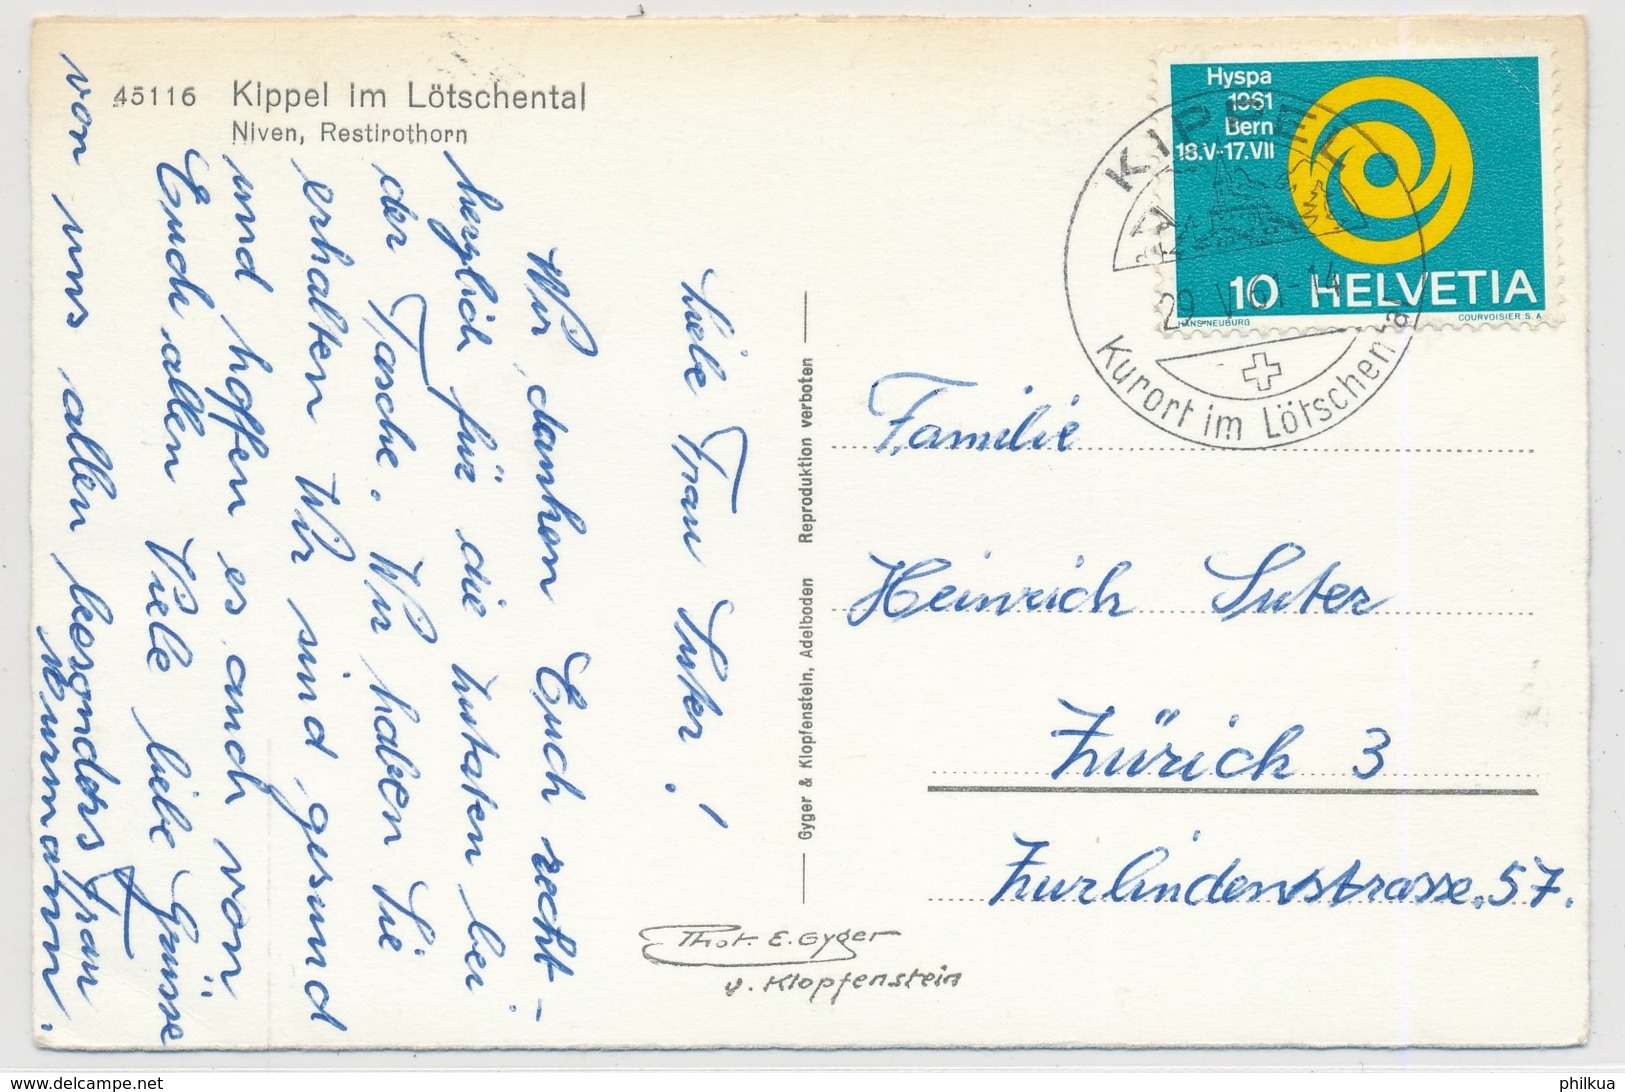 45116 Kippel im Lötschental
Niven, Restirothorn
Liebe Frau Suter!
Wir danken Euch recht-
herzlich für die Zutaten bei
der Tasche. Wir haben Sie
erhalten Wir sind gesund
und hoffen es auch von
Euch allen Viele liebe Grüsse
von uns allen besonders Frau
Murmann.
Gyger & Klopfenstein, Adelboden Reproduktion verboten
Phot. E. Gyger
v. Klopfenstein
Hyspa
1961
Bern
18.V-17.VII
10 HELVETIA
HANS NEUBURG
COURVOISIER S.A.
KIPPEL
29.V.61-14
Kurort im Lötschental
Familie
Heinrich Suter
Zürich 3
Zurlindenstrasse.57.
philkua